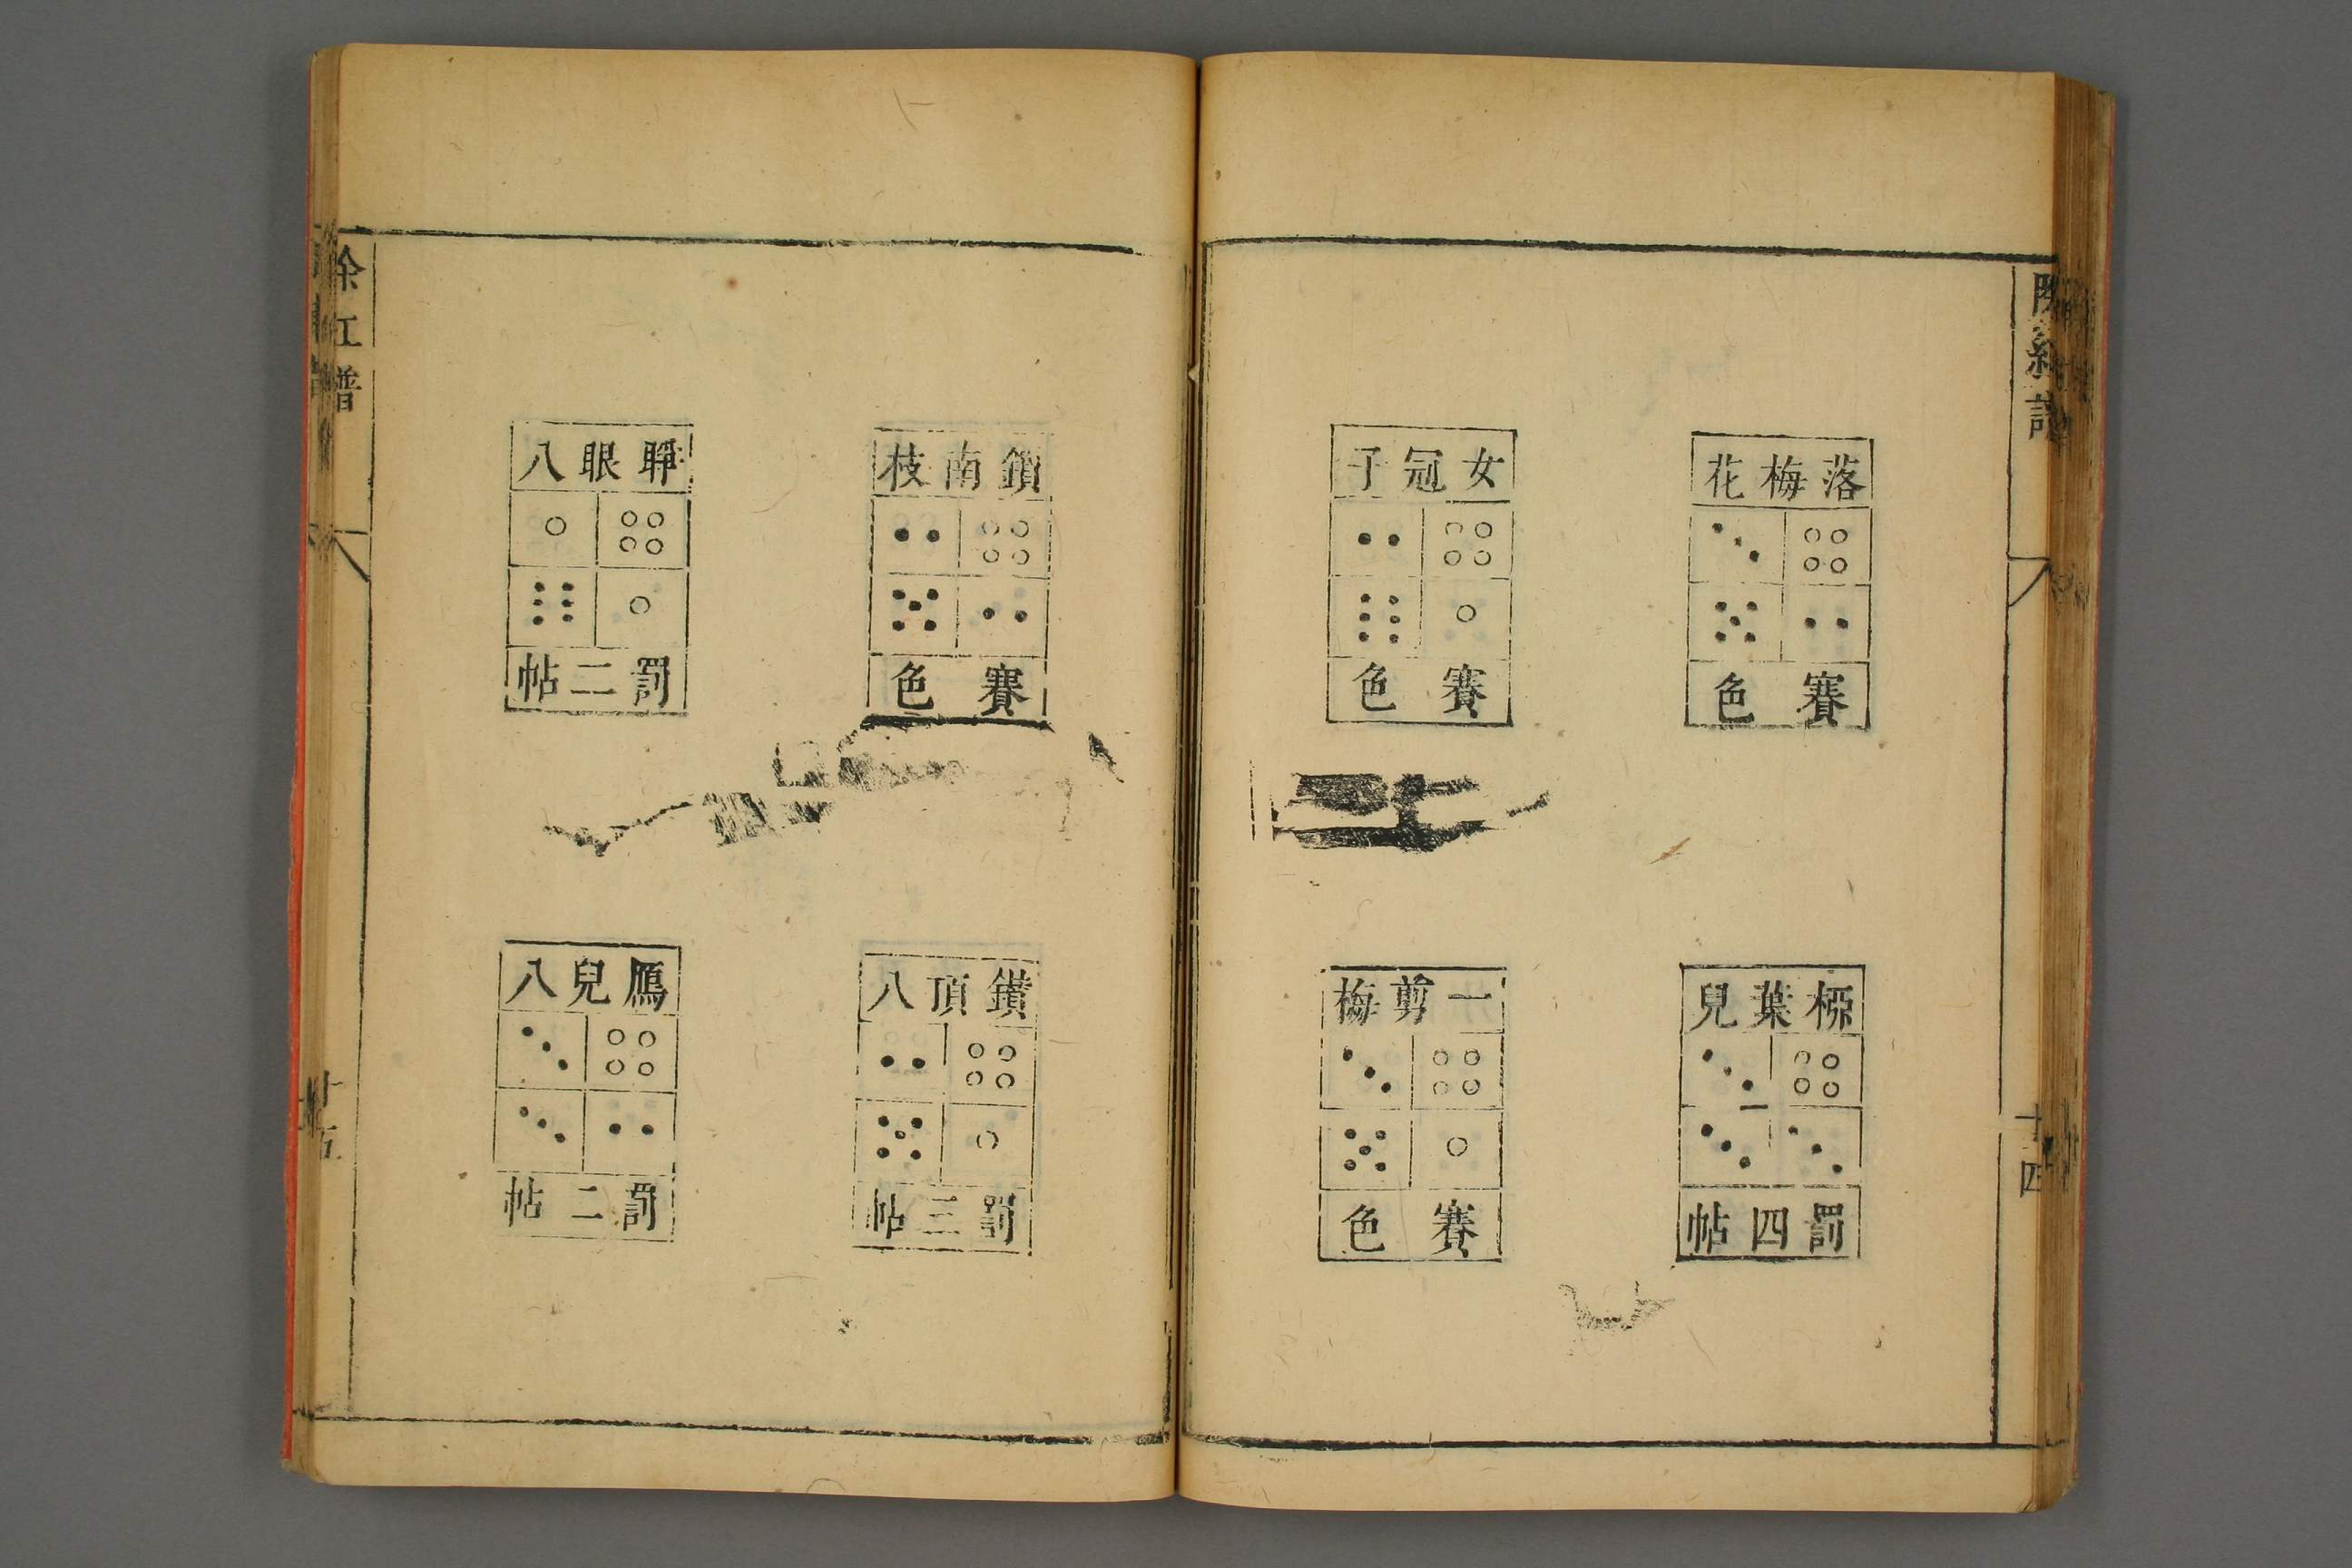 除紅譜
十四
落梅花
賽色
桺葉兒
罰四帖
女冠子
賽色
一剪梅
賽色
鎖南枝
賽色
鑚頂八
罰三帖
睜眼八
罰二帖
鴈兒八
罰二帖
除紅譜
十五